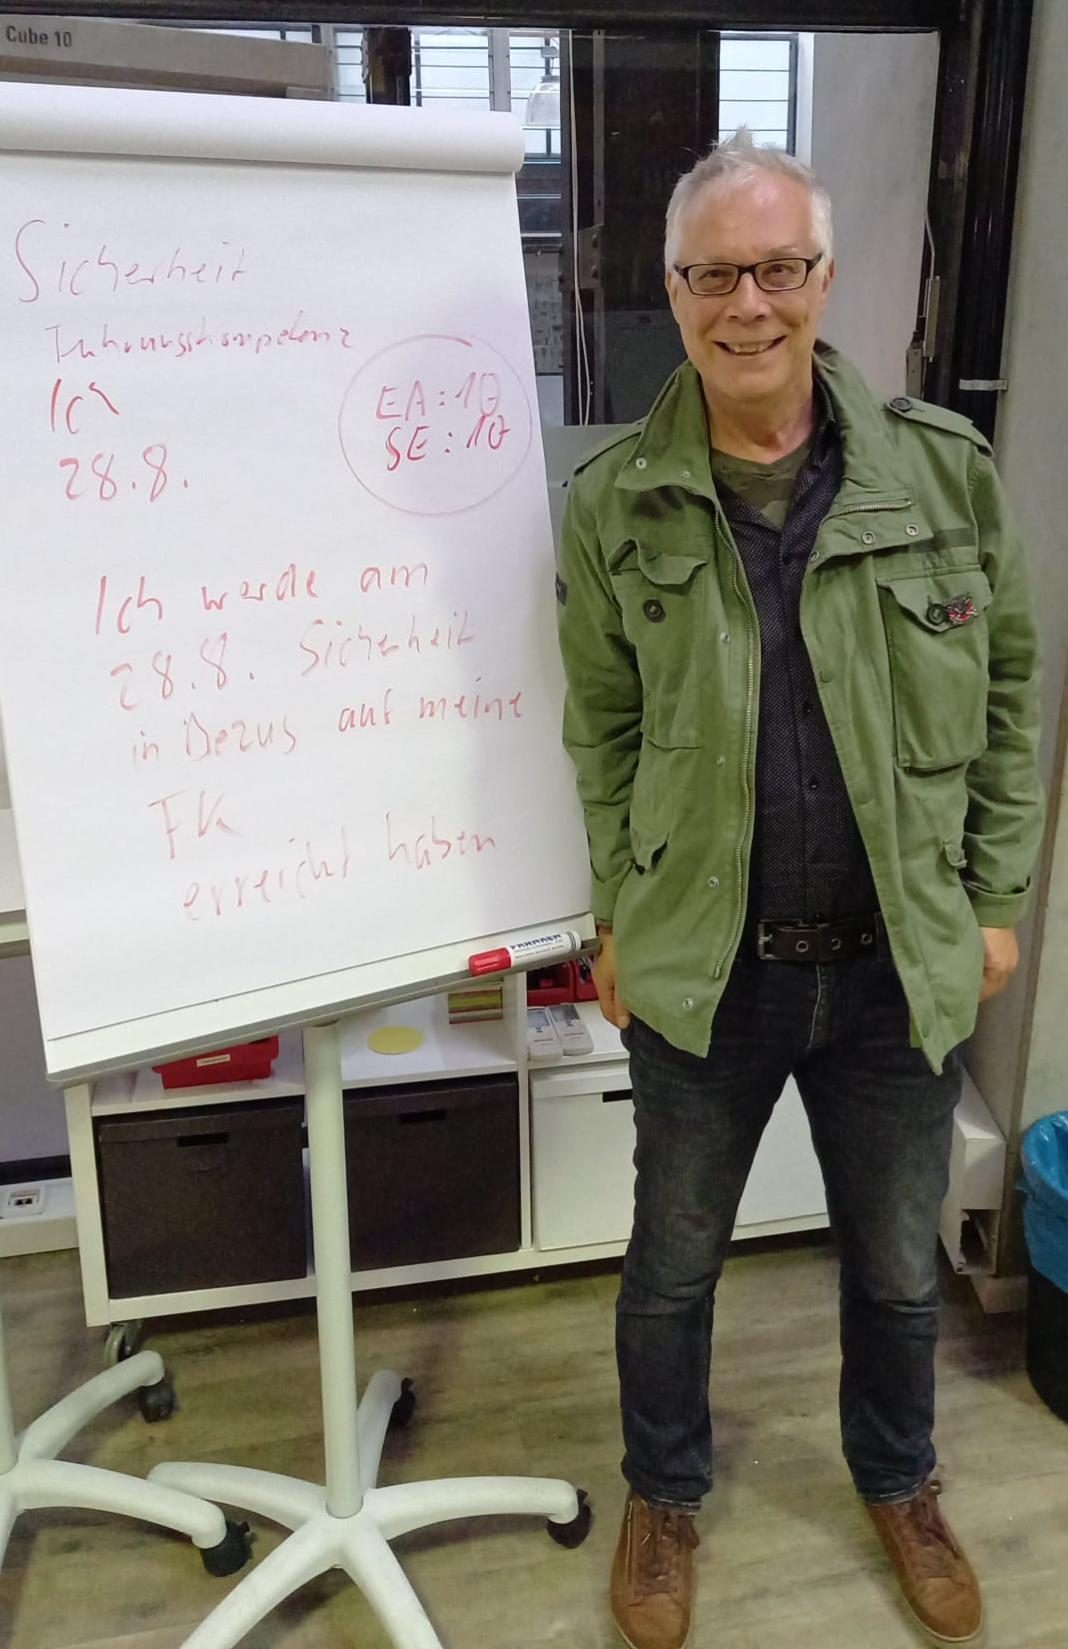 Cube 10
Sicherheit
Führungskompetenz
Ich
28.8.
EA: 10
SE: 10
Ich werde am
28.8. Sicherheit
in Bezug auf meine
FK
erreicht haben